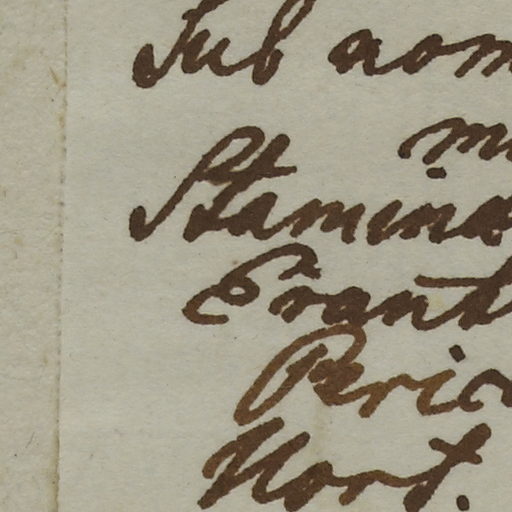 Sub nom
m
Stamina
Erant
Peric
Hort.